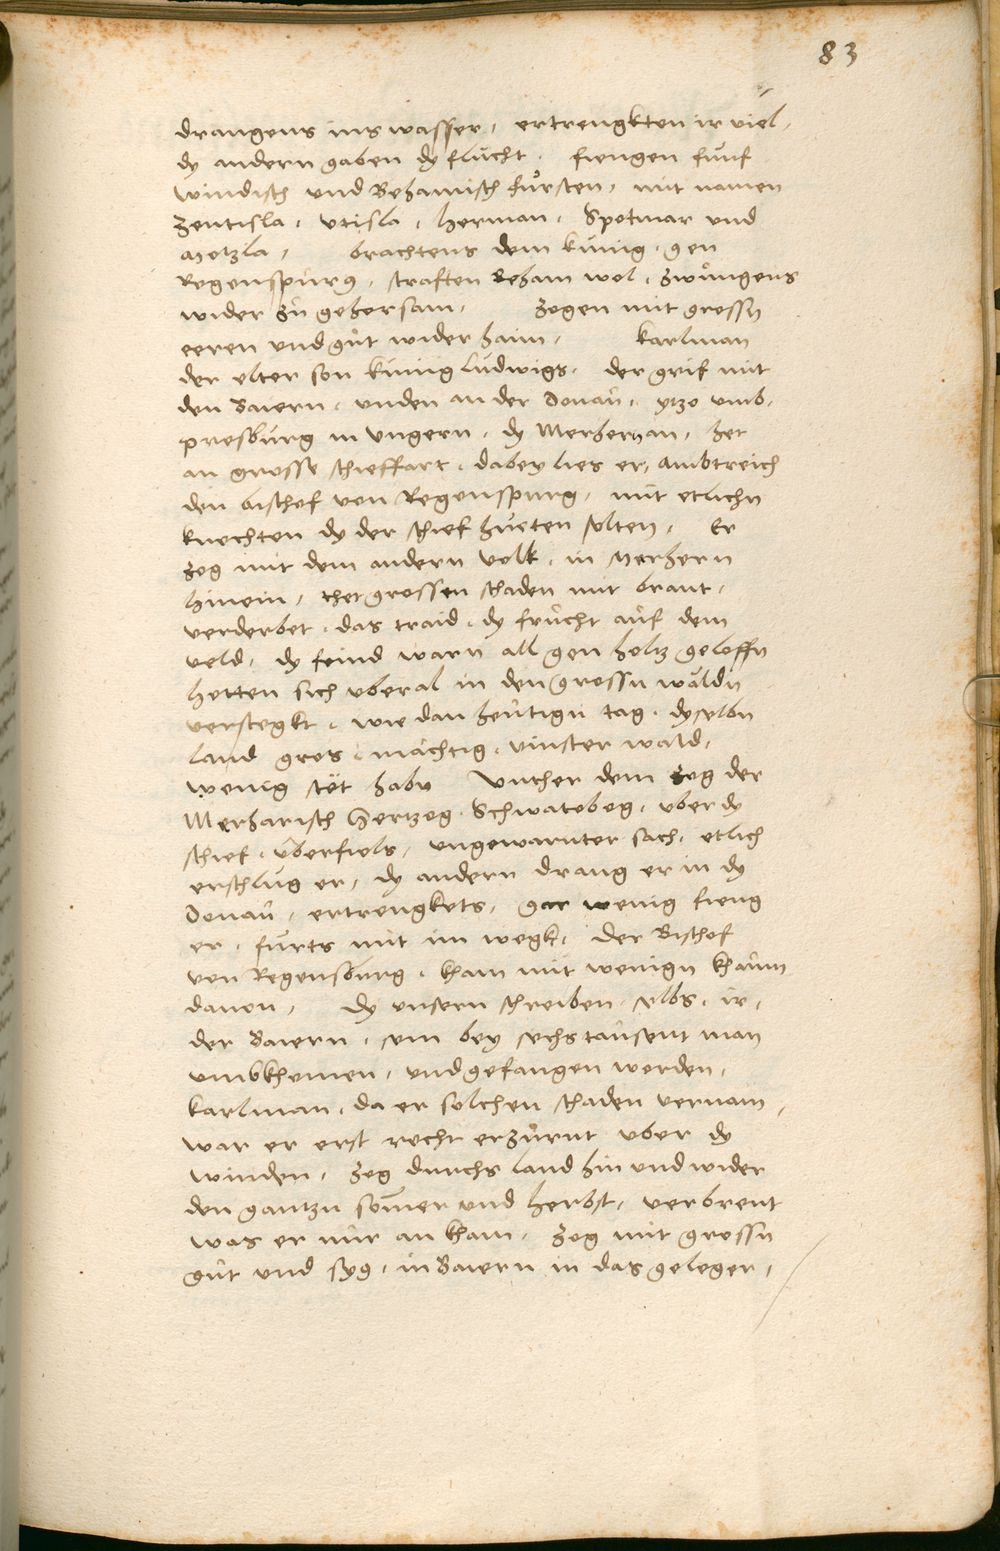 83
drangens ins wasser, ertrengkten ir viel,
dy andern gaben dy flucht. fiengen funf
windisch und Behamisch fürsten, mit namen
Zentisla, Utisla, Herman, Spotmar und
Motzla, brachtens dem künig gen
Regenspurg, straften Beham wol, zwungens
wider zu gehorsam, Zogen mit grossn
eeren und gut wider haim, Karlman
der elter son künig Ludwigs, der grif mit
den Baiern, unden an der Donau, ytzo umb
presburg in Ungern, dy Merhern an, het
an grosse schieffart, dabey lies er, Ambtreich
den bischof von Regenspurg, mit etlichn
knechten dy der schief hueten solten, Er
zog mit dem andern volk, in Merhern
hinein, thet grossen schaden mit brant,
verderbet, das traid, dy frucht auf dem
veld, dy feind warn all gen holtz geloffn
hetten sich uberal in den grossn wäldn
verstegkt, wie dan heutign tag, dyselbn
land gros, mächtig, vinster wald,
wenig stët habn Unther dem zog der
Merharisch Hertzog Schwatobog, uber dy
schief, uberfiels, ungewarnter sach, etlich
erschlug er, dy andern drang er in dy
Donau, ertrengkets, gar wenig fieng
er, furts mit im wegk, der Bischof
von Regensburg, kham mit wenign khaum
davon, dy unsern schreiben selbs, ir,
der Baiern, sein bey sechstausent man
umbkhomen, und gefangen worden,
Karlman, da er solchen schaden vernam,
war er erst recht erzürnt uber dy
winden, zog durchs land hin und wider
den gantzn som̄er und herbst, verbrent
was er nur an kham, zog mit grossn
gut und syg, in Baiern in das geleger,